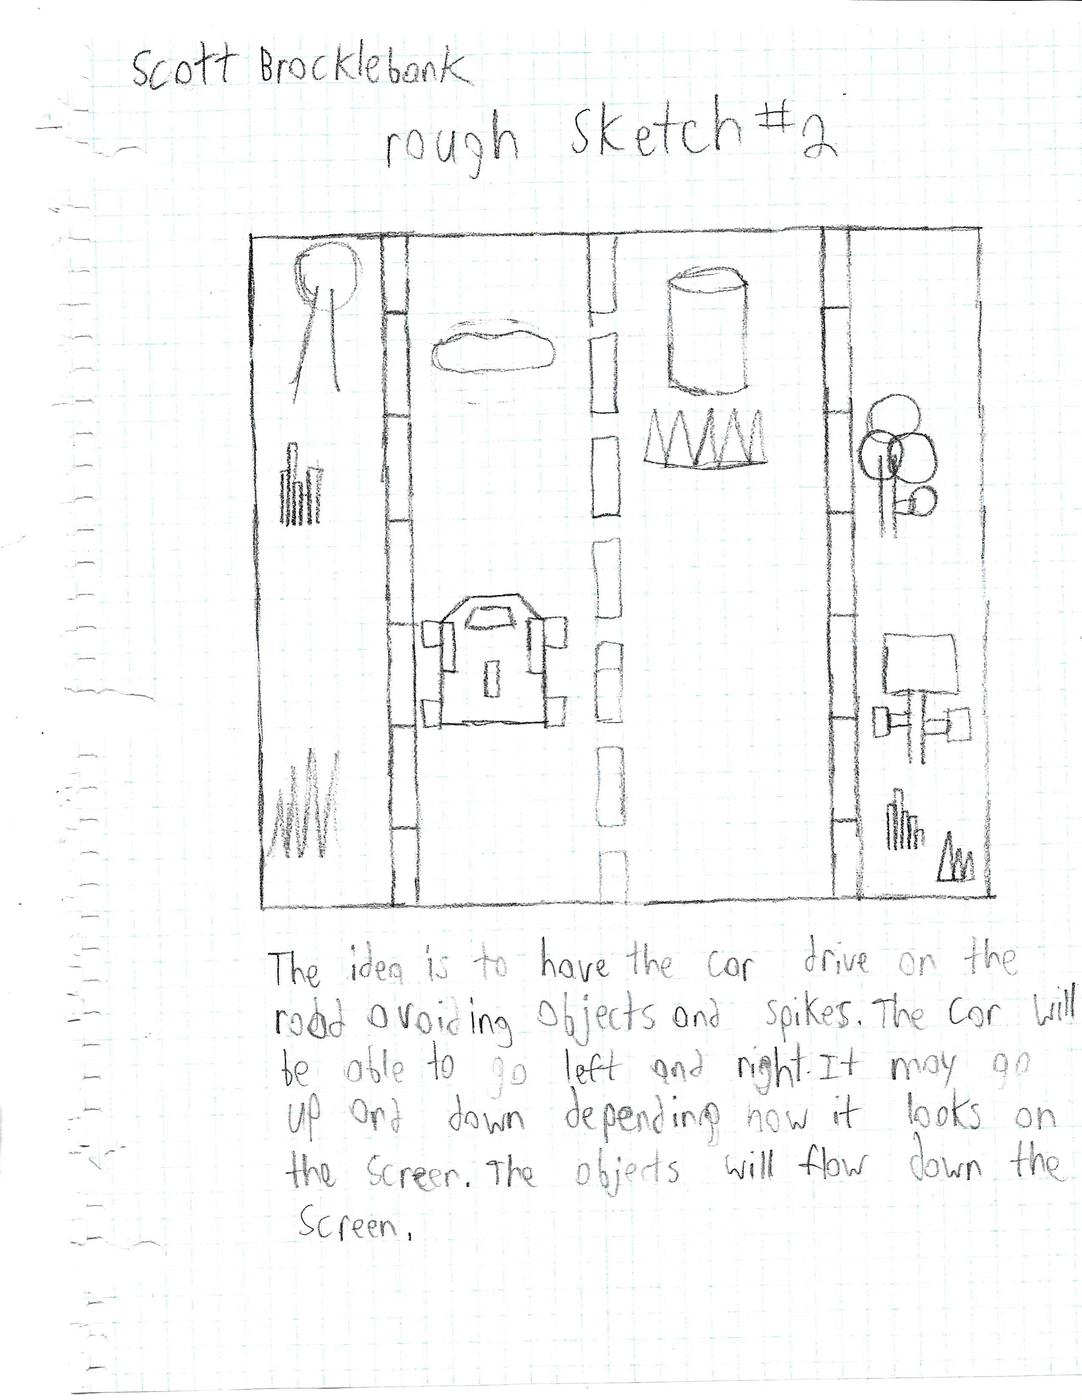 Scott Brocklebank
rough Sketch #2
The idea is to have the car drive on the
road avoiding objects and spikes. The car will
be able to go left and right. It may go
up and down depending how it looks on
the screen. The objects will flow down the
screen.